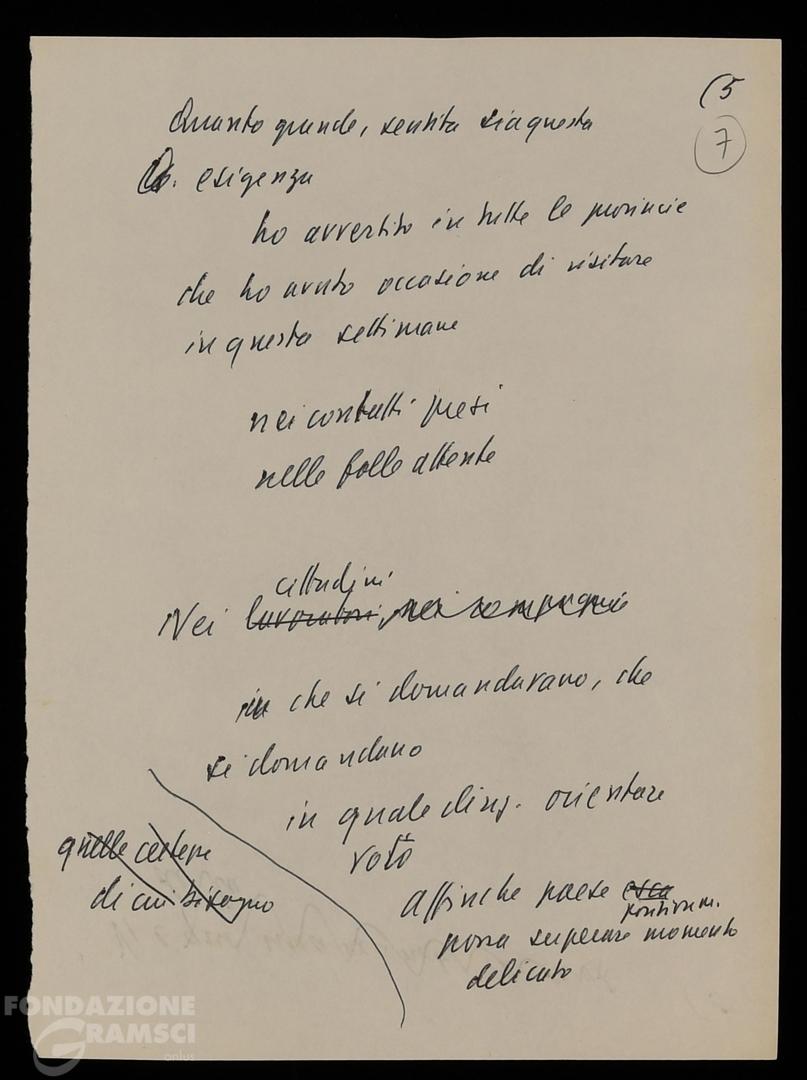 (5
7
Quanto grande, sentita sia questa
esigenza
ho avvertito in tutte le provincie
che ho avuto occasione di visitare
in questa settimane
nei contatti presi
nelle folle attente
cittadini
Nei lavoratori, nei compagni
in che si domandavano, che
si domandano
in quale direz. orientare
voto
quelle certezze
di cui bisogno
affinché paese esca
possa superare momento
delicato
FONDAZIONE
GRAMSCI
onlus